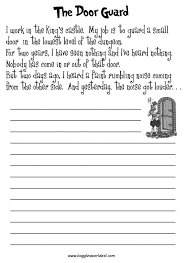 The Door Guard
I work in the King's castle. My job is to guard a small
door in the lowest level of the dungeon.
For two years, I have seen nothing and I've heard nothing.
Nobody has come in or out of that door.
But two days ago, I heard a faint rumbling noise coming
from the other side. And yesterday, the noise got louder. . .
www.boggleesworldesl.com